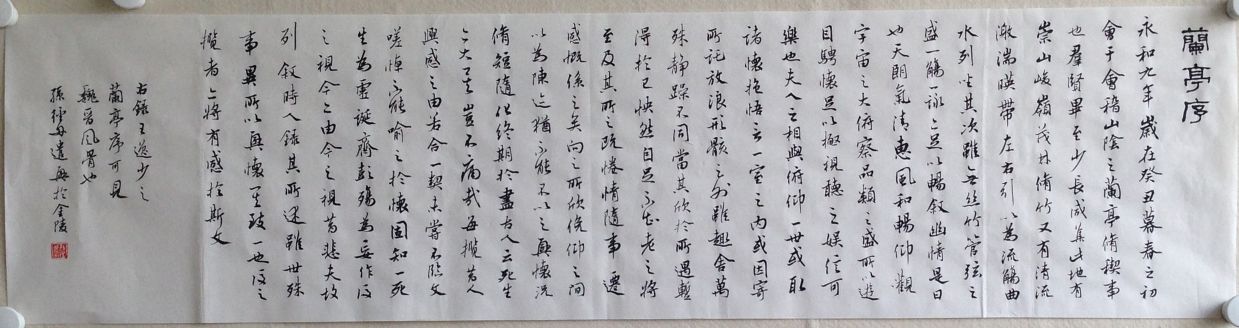 蘭亭序
永和九年歲在癸丑暮春之初
會于會稽山陰之蘭亭脩稧事
也羣賢畢至少長咸集此地有
崇山峻嶺茂林脩竹又有清流
激湍暎帶左右引以為流觴曲
水列坐其次雖無絲竹管弦之
盛一觴一詠亦足以暢敘幽情是日
也天朗氣清惠風和暢仰觀
宇宙之大俯察品類之盛所以遊
目騁懷足以極視聽之娛信可
樂也夫人之相與俯仰一世或取
諸懷抱悟言一室之內或因寄
所託放浪形骸之外雖趣舍萬
殊靜躁不同當其欣於所遇暫
得於己怏然自足不知老之將
至及其所之既惓情隨事遷
感慨係之矣向之所欣俛仰之間
以為陳迹猶不能不以之興懷況
脩短隨化終期於盡古人云死生
亦大矣豈不痛哉每攬昔人
興感之由若合一契未嘗不臨文
嗟悼不能喻之於懷固知一死
生為虛誕齊彭殤為妄作後
之視今亦由今之視昔悲夫故
列敘時人錄其所述雖世殊
事異所以興懷其致一也後之
攬者亦將有感於斯文
右錄王逸少之
蘭亭序可見
魏晉風骨也
孫 遣毫於金陵